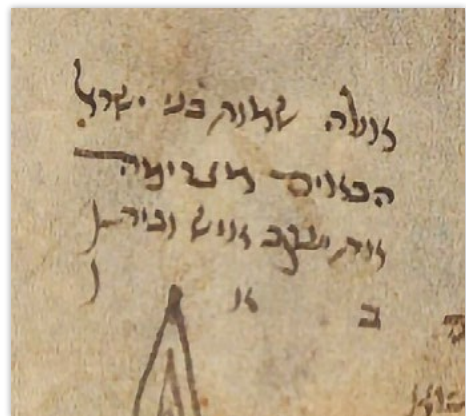 אלה שמות בני ישראל
הבאים מצרימה
את יעקב איש וביתו
ב א ו